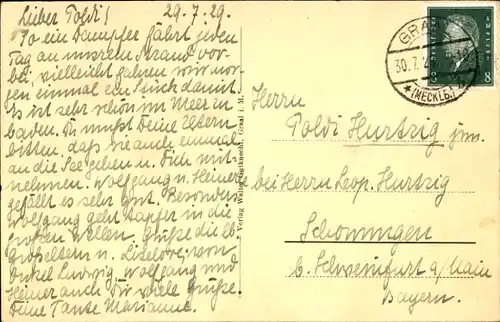 Lieber Poldi! 29.7.29.
So ein Dampfer fährt jeden
Tag an unsrem Strand vor-
bei, vielleicht fahren wir mor-
gen einmal ein Stück damit.
Es ist sehr schön im Meer zu
baden. Du mußt Deine Eltern
bitten, daß sie auch einmal
an die See gehen u. Dich mit-
nehmen. Wolfgang u. Heiner
gefällt es sehr gut. Besonders
Wolfgang geht tapfer in die
großen Wellen. Grüße die lb.
Großeltern u. Liselore, von
Onkel Ludwig, Wolfgang und
Heiner auch Dir viele Grüße.
Deine Tante Marianne.
Verlag Walter Gutknecht, Graal i. M.
GRAAL
30.7.
(MECKLB.)
8 8
Herrn
Poldi Hurtzig jun.
bei Herrn Leop. Hurtzig
Schonungen
b. Schweinfurt a/Main
Bayern.